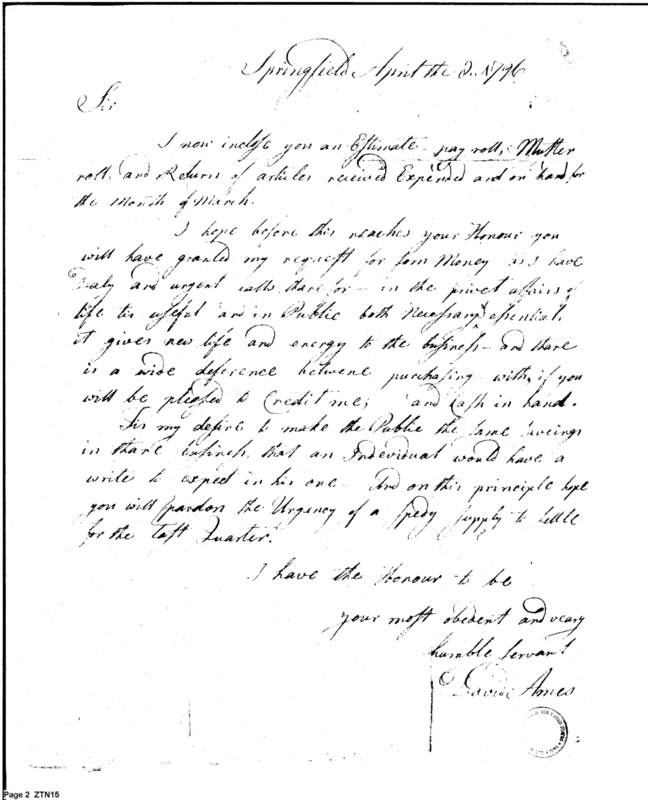 Springfield April the 2. 1796
Sir
I now inclose you an Estimate pay roll, Muster
roll, and Return of articles received Expended and on hand for
the month of March.
I hope before this reaches your Honour you
will have granted my request for som Money as I have
Daly and urgent calls thare for – in the privet affairs of
life tis useful and in Public both Necessary & essential,
it gives new life and energy to the business – and thare
is a wide deference betwene purchasing with, if you
will be pleased to Credit me; and Cash in hand.
Tis my desire to make the Public the same saveings
in thare business, that an Individual would have a
write to expect in his one – And on this principle hope
you will pardon the Urgency of a Spedy supply to settle
for the last Quarter.
I have the Honour to be
your most obedent and veary
humble servant
David Ames
Page 2 ZTN15